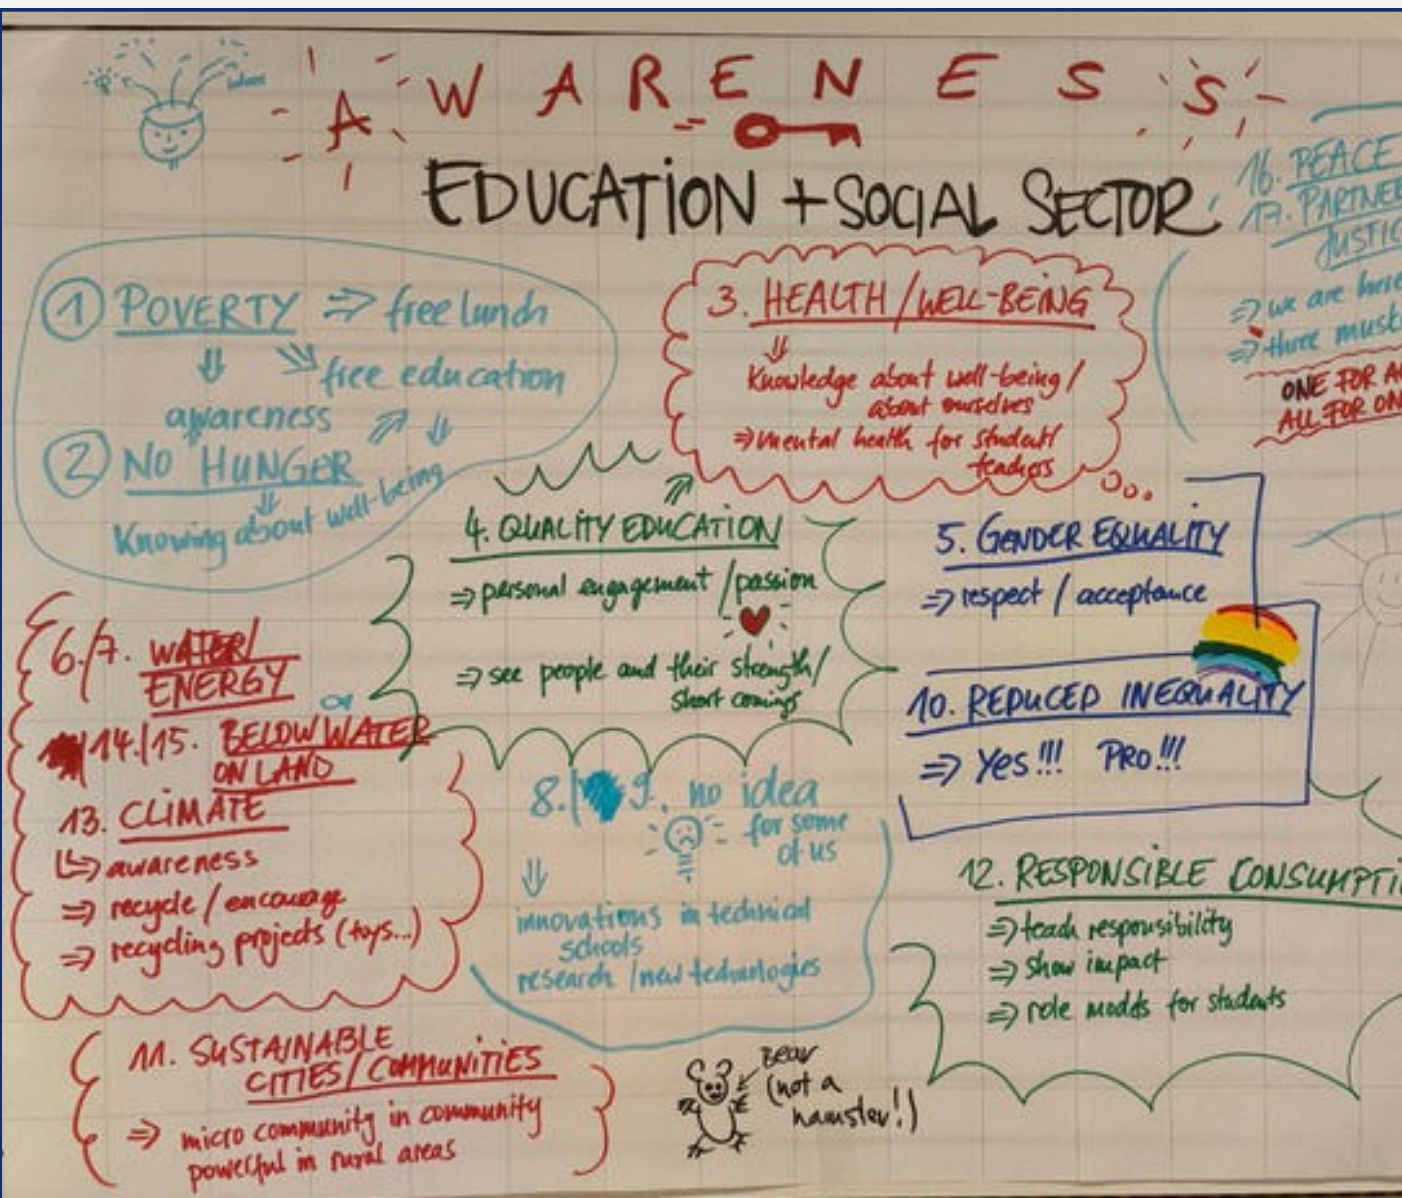 ideas
AWARENESS
EDUCATION + SOCIAL SECTOR
1 POVERTY ⇒ free lunch
free education
awareness
2 NO HUNGER
Knowing about well-being
3. HEALTH / WELL-BEING
Knowledge about well-being /
about ourselves
⇒ mental health for student/
teachers
16. PEACE
17. PARTNER
JUSTIC
⇒ we are here
⇒ three musk
ONE FOR A
ALL FOR ON
4. QUALITY EDUCATION
⇒ personal engagement / passion
⇒ see people and their strength/
short comings
5. GENDER EQUALITY
⇒ respect / acceptance
10. REDUCED INEQUALITY
⇒ Yes!!! PRO!!!
6./7. WATER/
ENERGY
14./15. BELOW WATER
ON LAND
13. CLIMATE
↳ awareness
⇒ recycle / encourage
⇒ recycling projects (toys...)
8./ 9. no idea
for some
of us
innovations in technical
schools
research / new technologies
12. RESPONSIBLE CONSUMPTI
⇒ teach responsibility
⇒ show impact
⇒ role models for students
11. SUSTAINABLE
CITIES / COMMUNITIES
⇒ micro community in community
powerful in rural areas
Bear
(not a
hamster!)